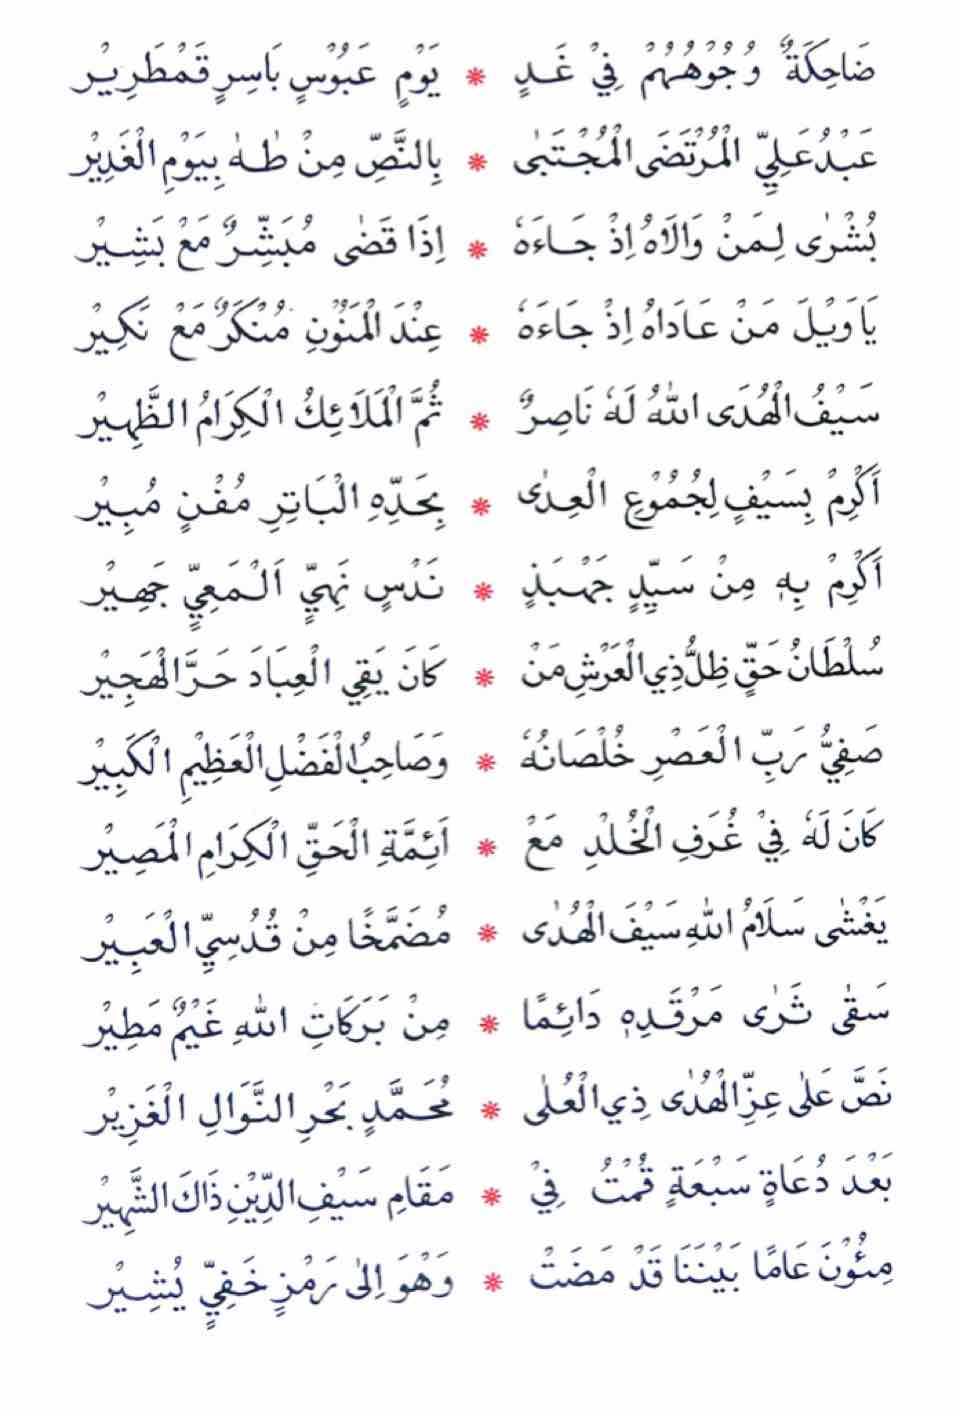 ضَاحِكَةٌ وُجُوْهُهُمْ فِيْ غَدٍ * يَوْمٍ عَبُوْسٍ بَاسِرٍ قَمْطَرِيْر
عَبْدُ عَلِيِّ الْمُرْتَضَى الْمُجْتَبٰى * بِالنَّصِّ مِنْ طٰهٰ بِيَوْمِ الْغَدِيْر
بُشْرٰى لِمَنْ وَالَاهُ إِذْ جَاءَهٗ * إِذَا قَضٰى مُبَشِّرٌ مَعْ بَشِيْر
يَا وَيْلَ مَنْ عَادَاهُ إِذْ جَاءَهٗ * عِنْدَ الْمَنُوْنِ مُنْكَرٌ مَعْ نَكِيْر
سَيْفُ الْهُدَى اللهُ لَهٗ نَاصِرٌ * ثُمَّ الْمَلَائِكُ الْكِرَامُ الظَّهِيْر
أَكْرِمْ بِسَيْفٍ لِجُمُوْعِ الْعِدٰى * بِحَدِّهِ الْبَاتِرِ مُفْنٍ مُبِيْر
أَكْرِمْ بِهٖ مِنْ سَيِّدٍ جَهْبَذٍ * نَدْسٍ نَهِيٍّ اَلْمَعِيٍّ جَهِيْر
سُلْطَانُ حَقٍّ ظِلُّ ذِي الْعَرْشِ مَنْ * كَانَ يَقِي الْعِبَادَ حَرَّ الْهَجِيْر
صَفِيُّ رَبِّ الْعَصْرِ خُلْصَانُهٗ * وَصَاحِبُ الْفَضْلِ الْعَظِيْمِ الْكَبِيْر
كَانَ لَهٗ فِيْ غُرَفِ الْخُلْدِ مَعْ * اَئِمَّةِ الْحَقِّ الْكِرَامِ الْمَصِيْر
يَغْشٰى سَلَامُ اللهِ سَيْفَ الْهُدٰى * مُضَمَّخًا مِنْ قُدُسِيِّ الْعَبِيْر
سَقٰى ثَرٰى مَرْقَدِهٖ دَائِمًا * مِنْ بَرَكَاتِ اللهِ غَيْمٌ مَطِيْر
نَصَّ عَلٰى عِزِّ الْهُدٰى ذِي الْعُلٰى * مُحَمَّدٍ بَحْرِ النَّوَالِ الْغَزِيْر
بَعْدَ دُعَاةٍ سَبْعَةٍ قُمْتُ فِيْ * مَقَامِ سَيْفِ الدِّيْنِ ذَاكَ الشَّهِيْر
مِئُوْنَ عَامًا بَيْنَنَا قَدْ مَضَتْ * وَهْوَ اِلٰى رَمْزٍ خَفِيٍّ يُشِيْر